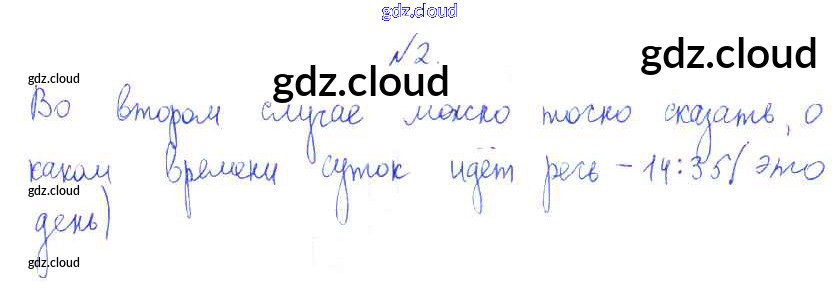 gdz.cloud
№2.
gdz.cloud gdz.cloud gdz.cloud
Во втором случае можно точно сказать, о
каком времени суток идёт речь - 14:35 (это
gdz.cloud
день)
gdz.cloud